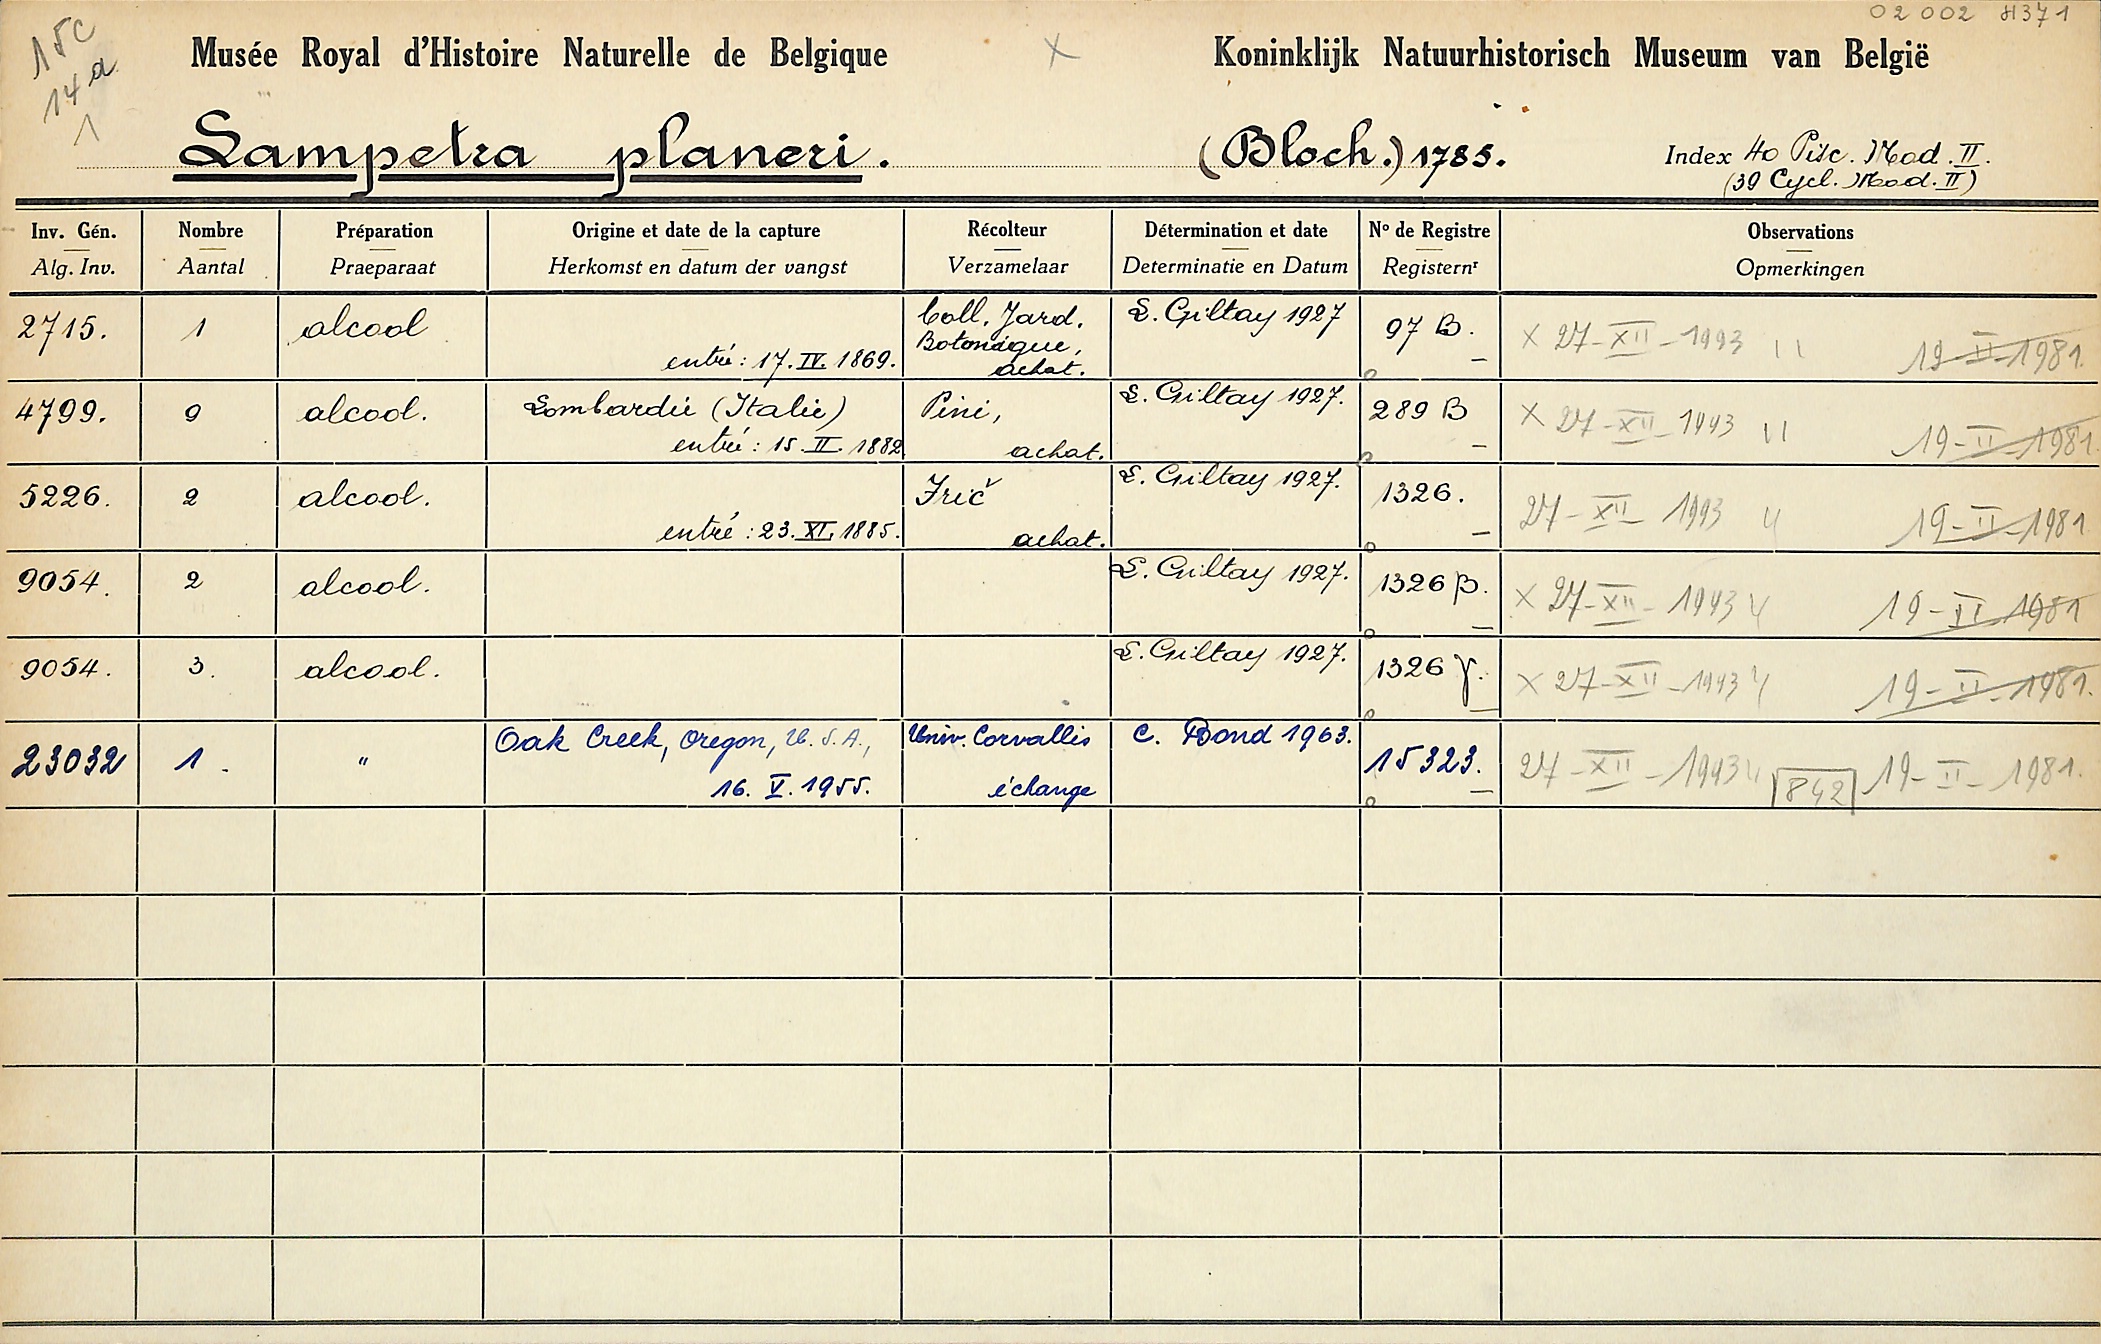 02 002 8371
15c
14a
1
Musée Royal d'Histoire Naturelle de Belgique
X
Koninklijk Natuurhistorisch Museum van België
Lampetra planeri. (Bloch.) 1785.
Index 40 Pisc. Mod. II.
(39 Cycl. Mod. II)
Inv. Gén. Nombre Préparation Origine et date de la capture Récolteur Détermination et date No de Registre Observations
Alg. Inv. Aantal Praeparaat Herkomst en datum der vangst Verzamelaar Determinatie en Datum Registernr Opmerkingen
2715. 1 alcool entré: 17. IV. 1869. Coll. Jard. Botanique, achat. L. Giltay 1927 97 B. X 27-XII-1993 19-II-1981.
4799. 9 alcool. Lombardie (Italie) entré: 15. II. 1882 Pini, achat. L. Giltay 1927. 289 B X 27-XII-1993 19-II-1981.
5226. 2 alcool. entré: 23. XI. 1885. Frič achat. L. Giltay 1927. 1326. 27-XII 1993 19-II-1981
9054. 2 alcool. L. Giltay 1927. 1326 β. X 27-XII-1993 19-II-1981
9054. 3. alcool. L. Giltay 1927. 1326 γ. X 27-XII-1993 19-II-1981.
23032 1. " Oak Creek, Oregon, U.S.A., 16. V. 1955. Univ. Corvallis échange C. Bond 1963. 15323. 27-XII-1993 842 19-II-1981.